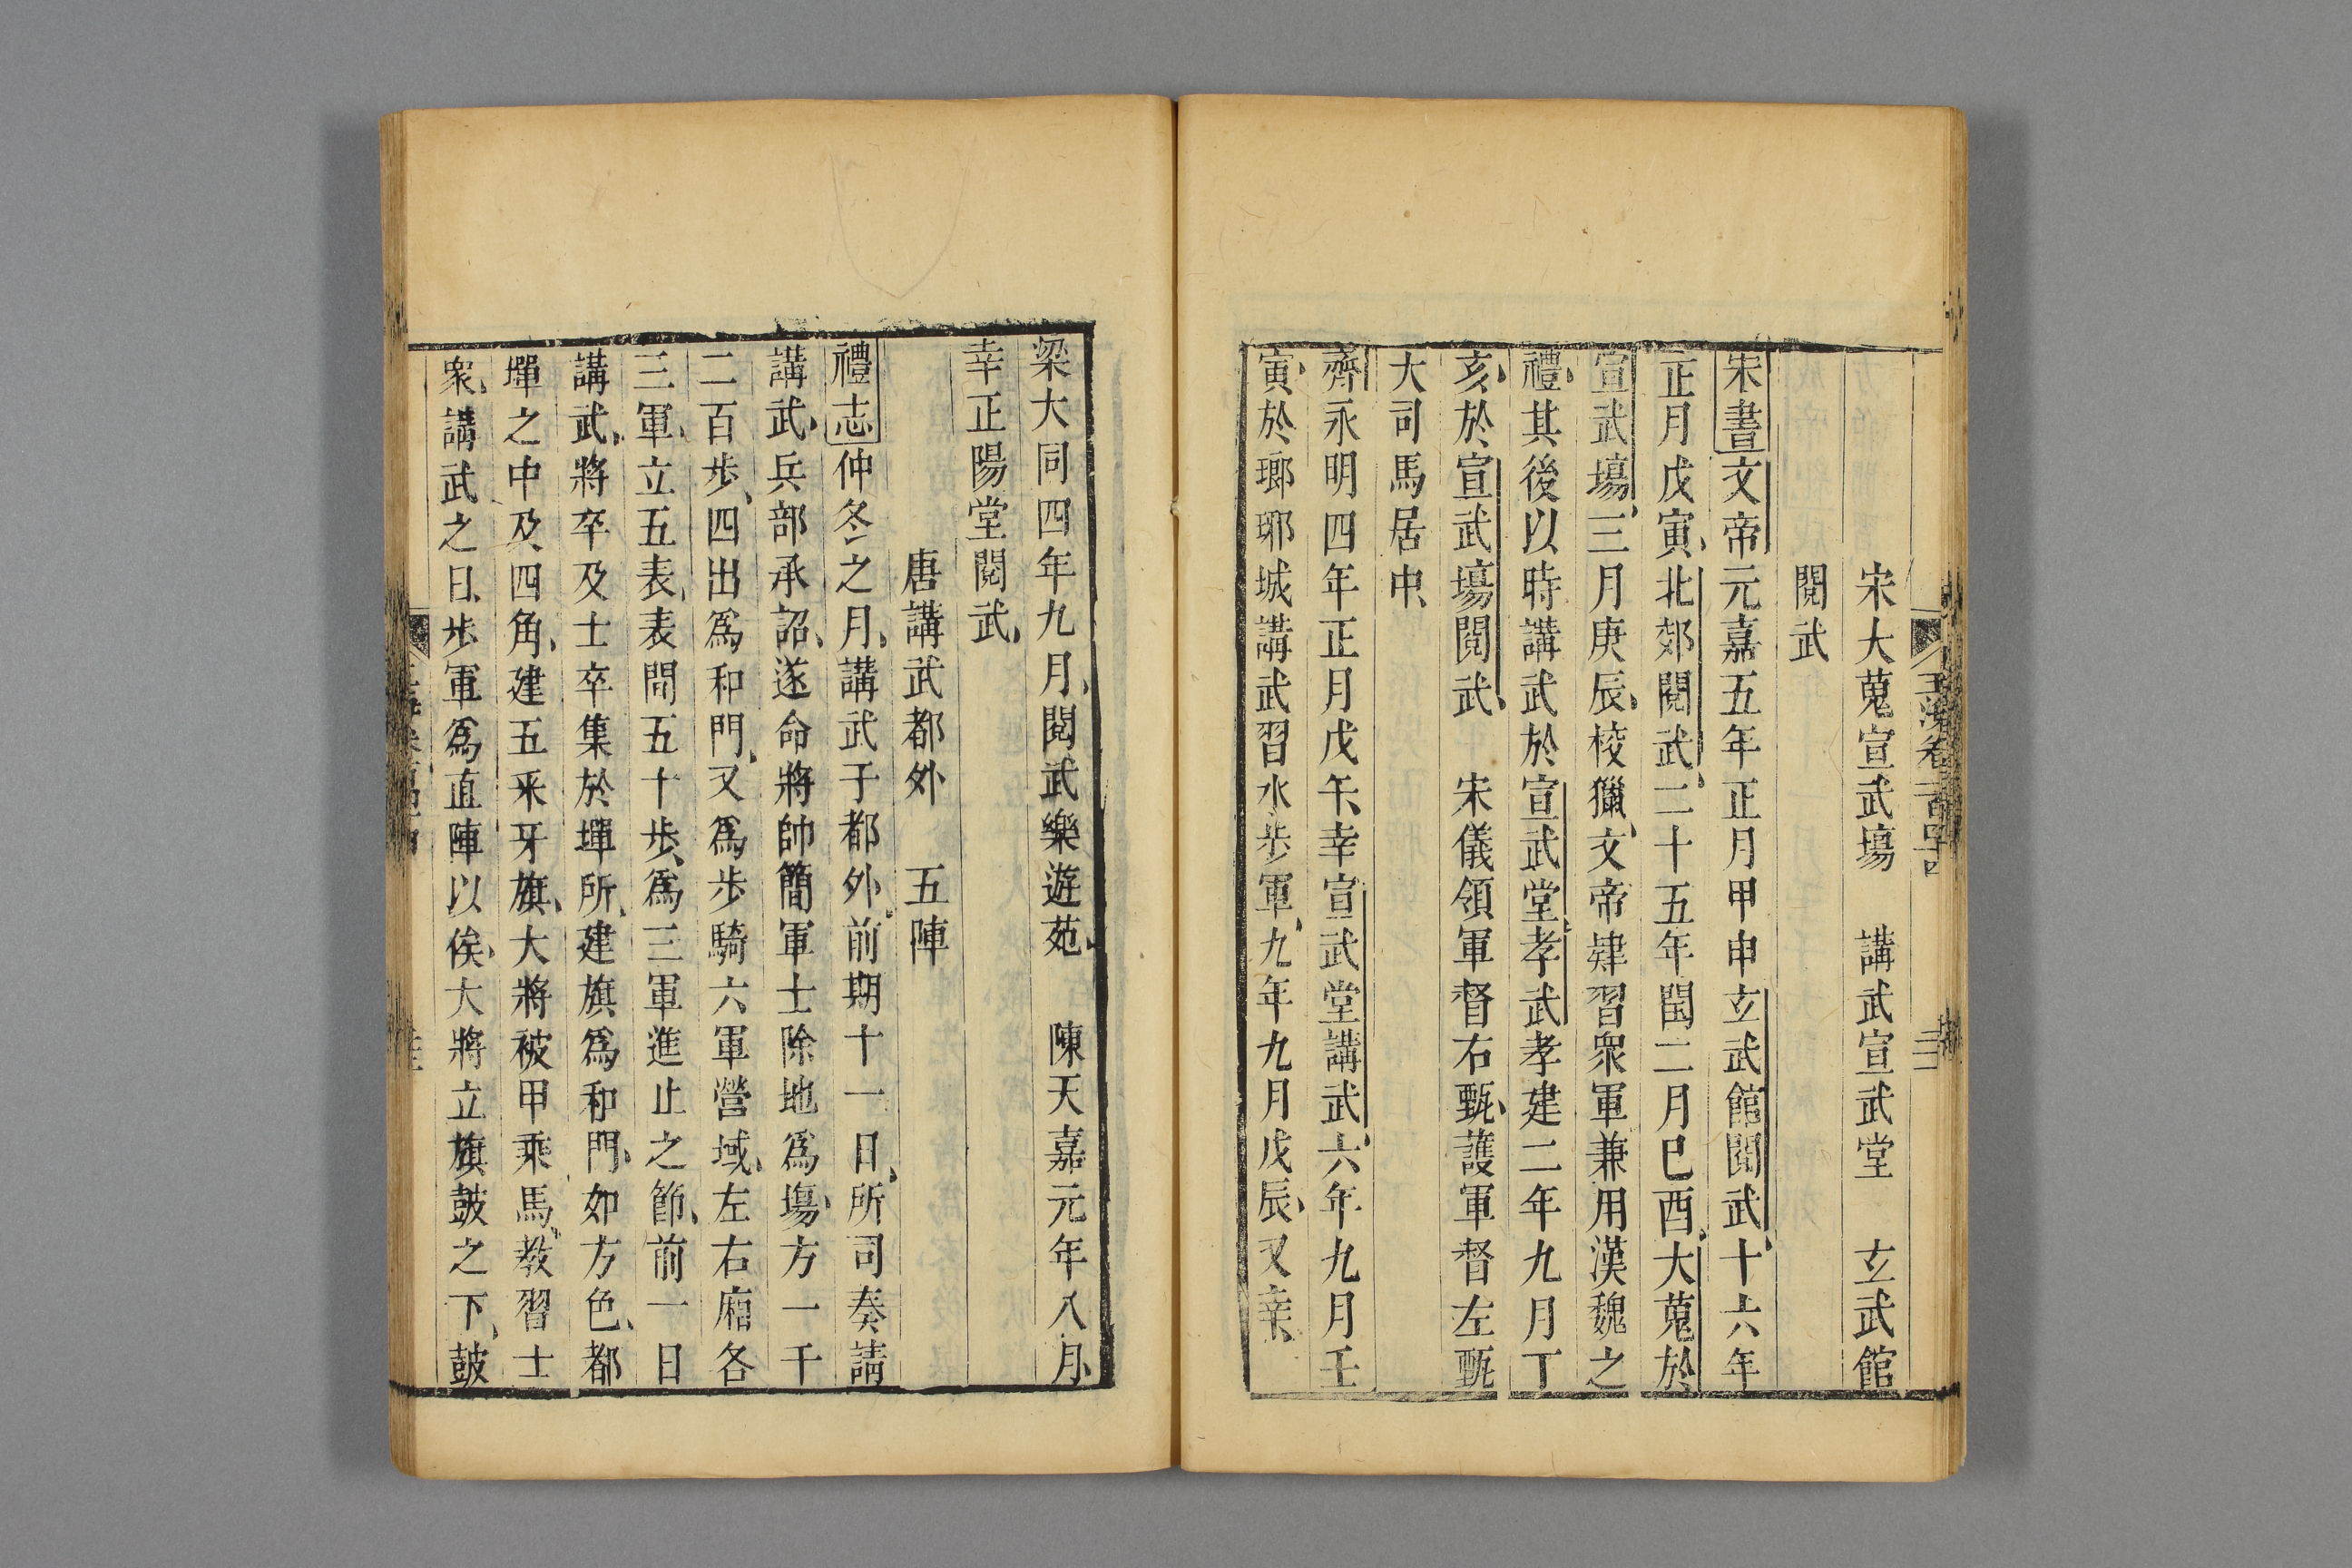 宋大蒐宣武塲　講武宣武堂　玄武館
閱武
宋書文帝元嘉五年正月甲申玄武館閱武十六年
正月戊寅北郊閱武二十五年閏二月巳酉大蒐於
宣武塲三月庚辰校獵文帝肄習衆軍兼用漢魏之
禮其後以時講武於宣武堂孝武孝建二年九月丁
亥於宣武塲閱武　宋儀領軍督右甄護軍督左甄
大司馬居中
齊永明四年正月戊午幸宣武堂講武六年九月壬
寅於瑯琊城講武習水步軍九年九月戊辰又幸
梁大同四年九月閱武樂遊苑　陳天嘉元年八月
幸正陽堂閱武
唐講武都外　五陣
禮志仲冬之月講武于都外前期十一日所司奏請
講武兵部承詔遂命將帥簡軍士除地為塲方一千
二百步四出為和門又為步騎六軍營域左右廂各
三軍立五表表間五十步為三軍進止之節前一日
講武將卒及士卒集於墠所建旗為和門如方色都
墠之中及四角建五釆牙旗大將被甲乘馬教習士
衆講武之日步軍為直陣以俟大將立旗鼓之下鼓